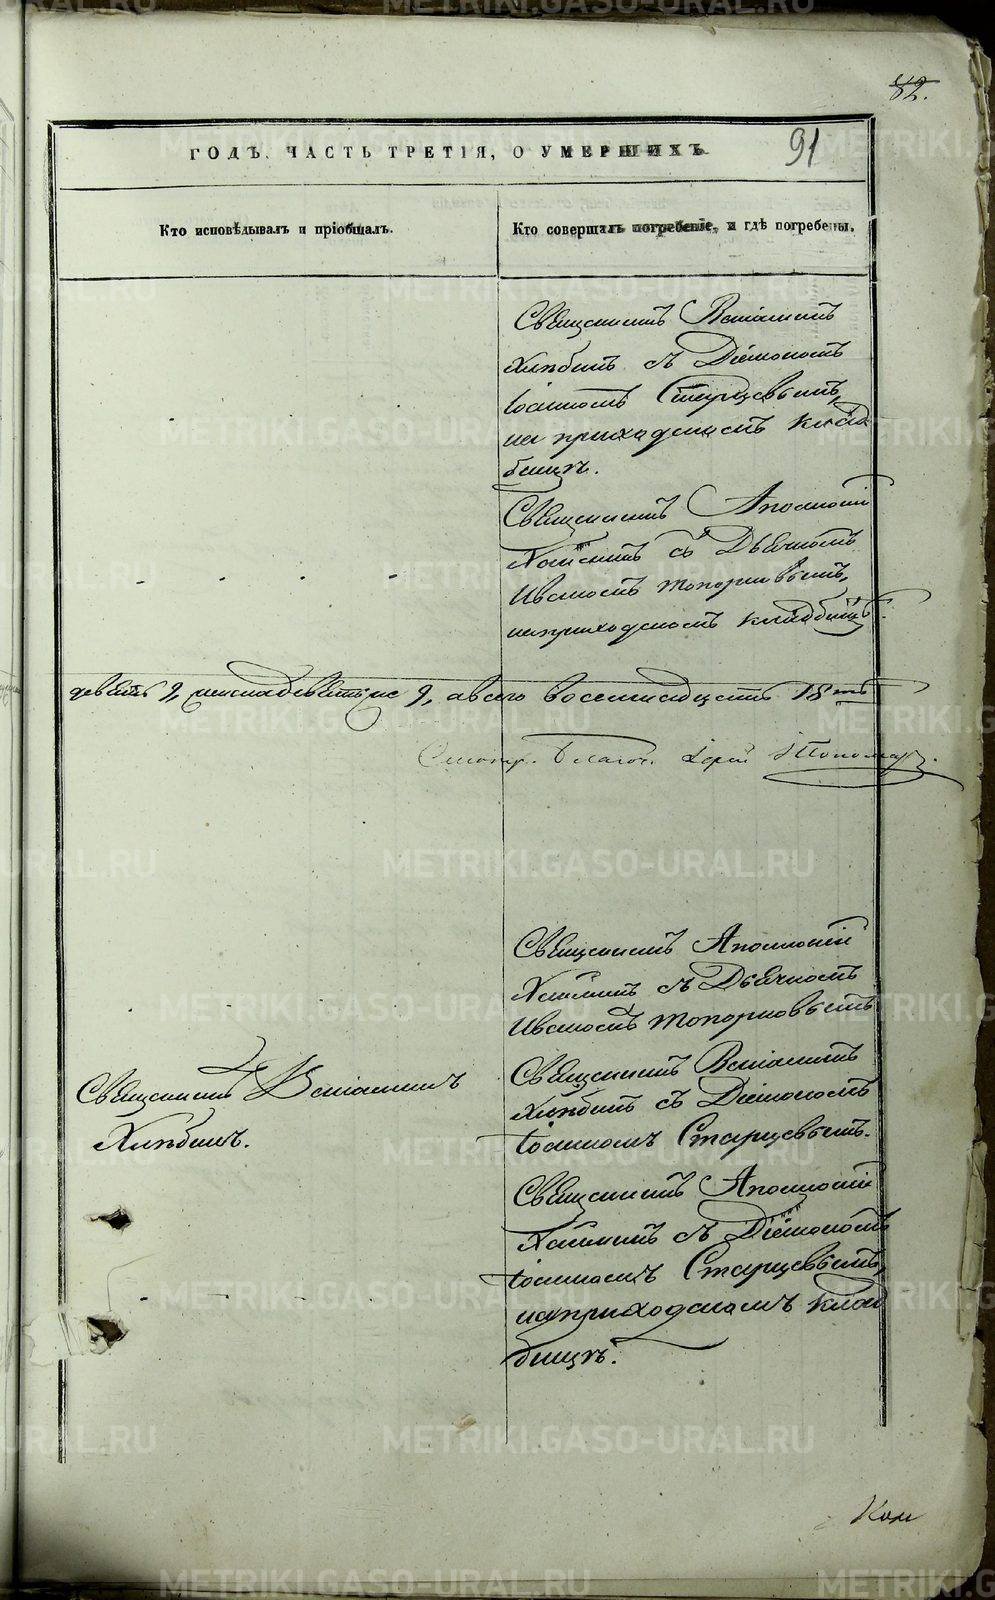 82.
91
ГОДЪ. ЧАСТЬ ТРЕТІЯ, О УМЕРШИХЪ.
Кто исповѣдывалъ и пріобщалъ.
Кто совершалъ погребеніе, и гдѣ погребены.
Священникъ Веніаминъ
Хлѣбинъ съ Діакономъ
Іоанномъ Старцевымъ,
на приходскомъ клад
бищѣ.
Священникъ Аполлоній
съ Дьячкомъ
Иваномъ Топорковымъ,
на приходскомъ кладбищѣ.
девять 9, женска девять же 9, а всего восемнадцать 18ть
Смотр. Благоч. Іерей
Священникъ Аполлоній
съ Дьячкомъ
Иваномъ Топорковымъ
Священникъ Веніаминъ
Хлѣбинъ.
Священникъ Веніаминъ
Хлѣбинъ съ Діакономъ
Іоанномъ Старцевымъ.
Священникъ Аполлоній
съ Діакономъ
Іоанномъ Старцевымъ,
на приходскомъ клад
бищѣ.
METRIKI.GASO-URAL.RU